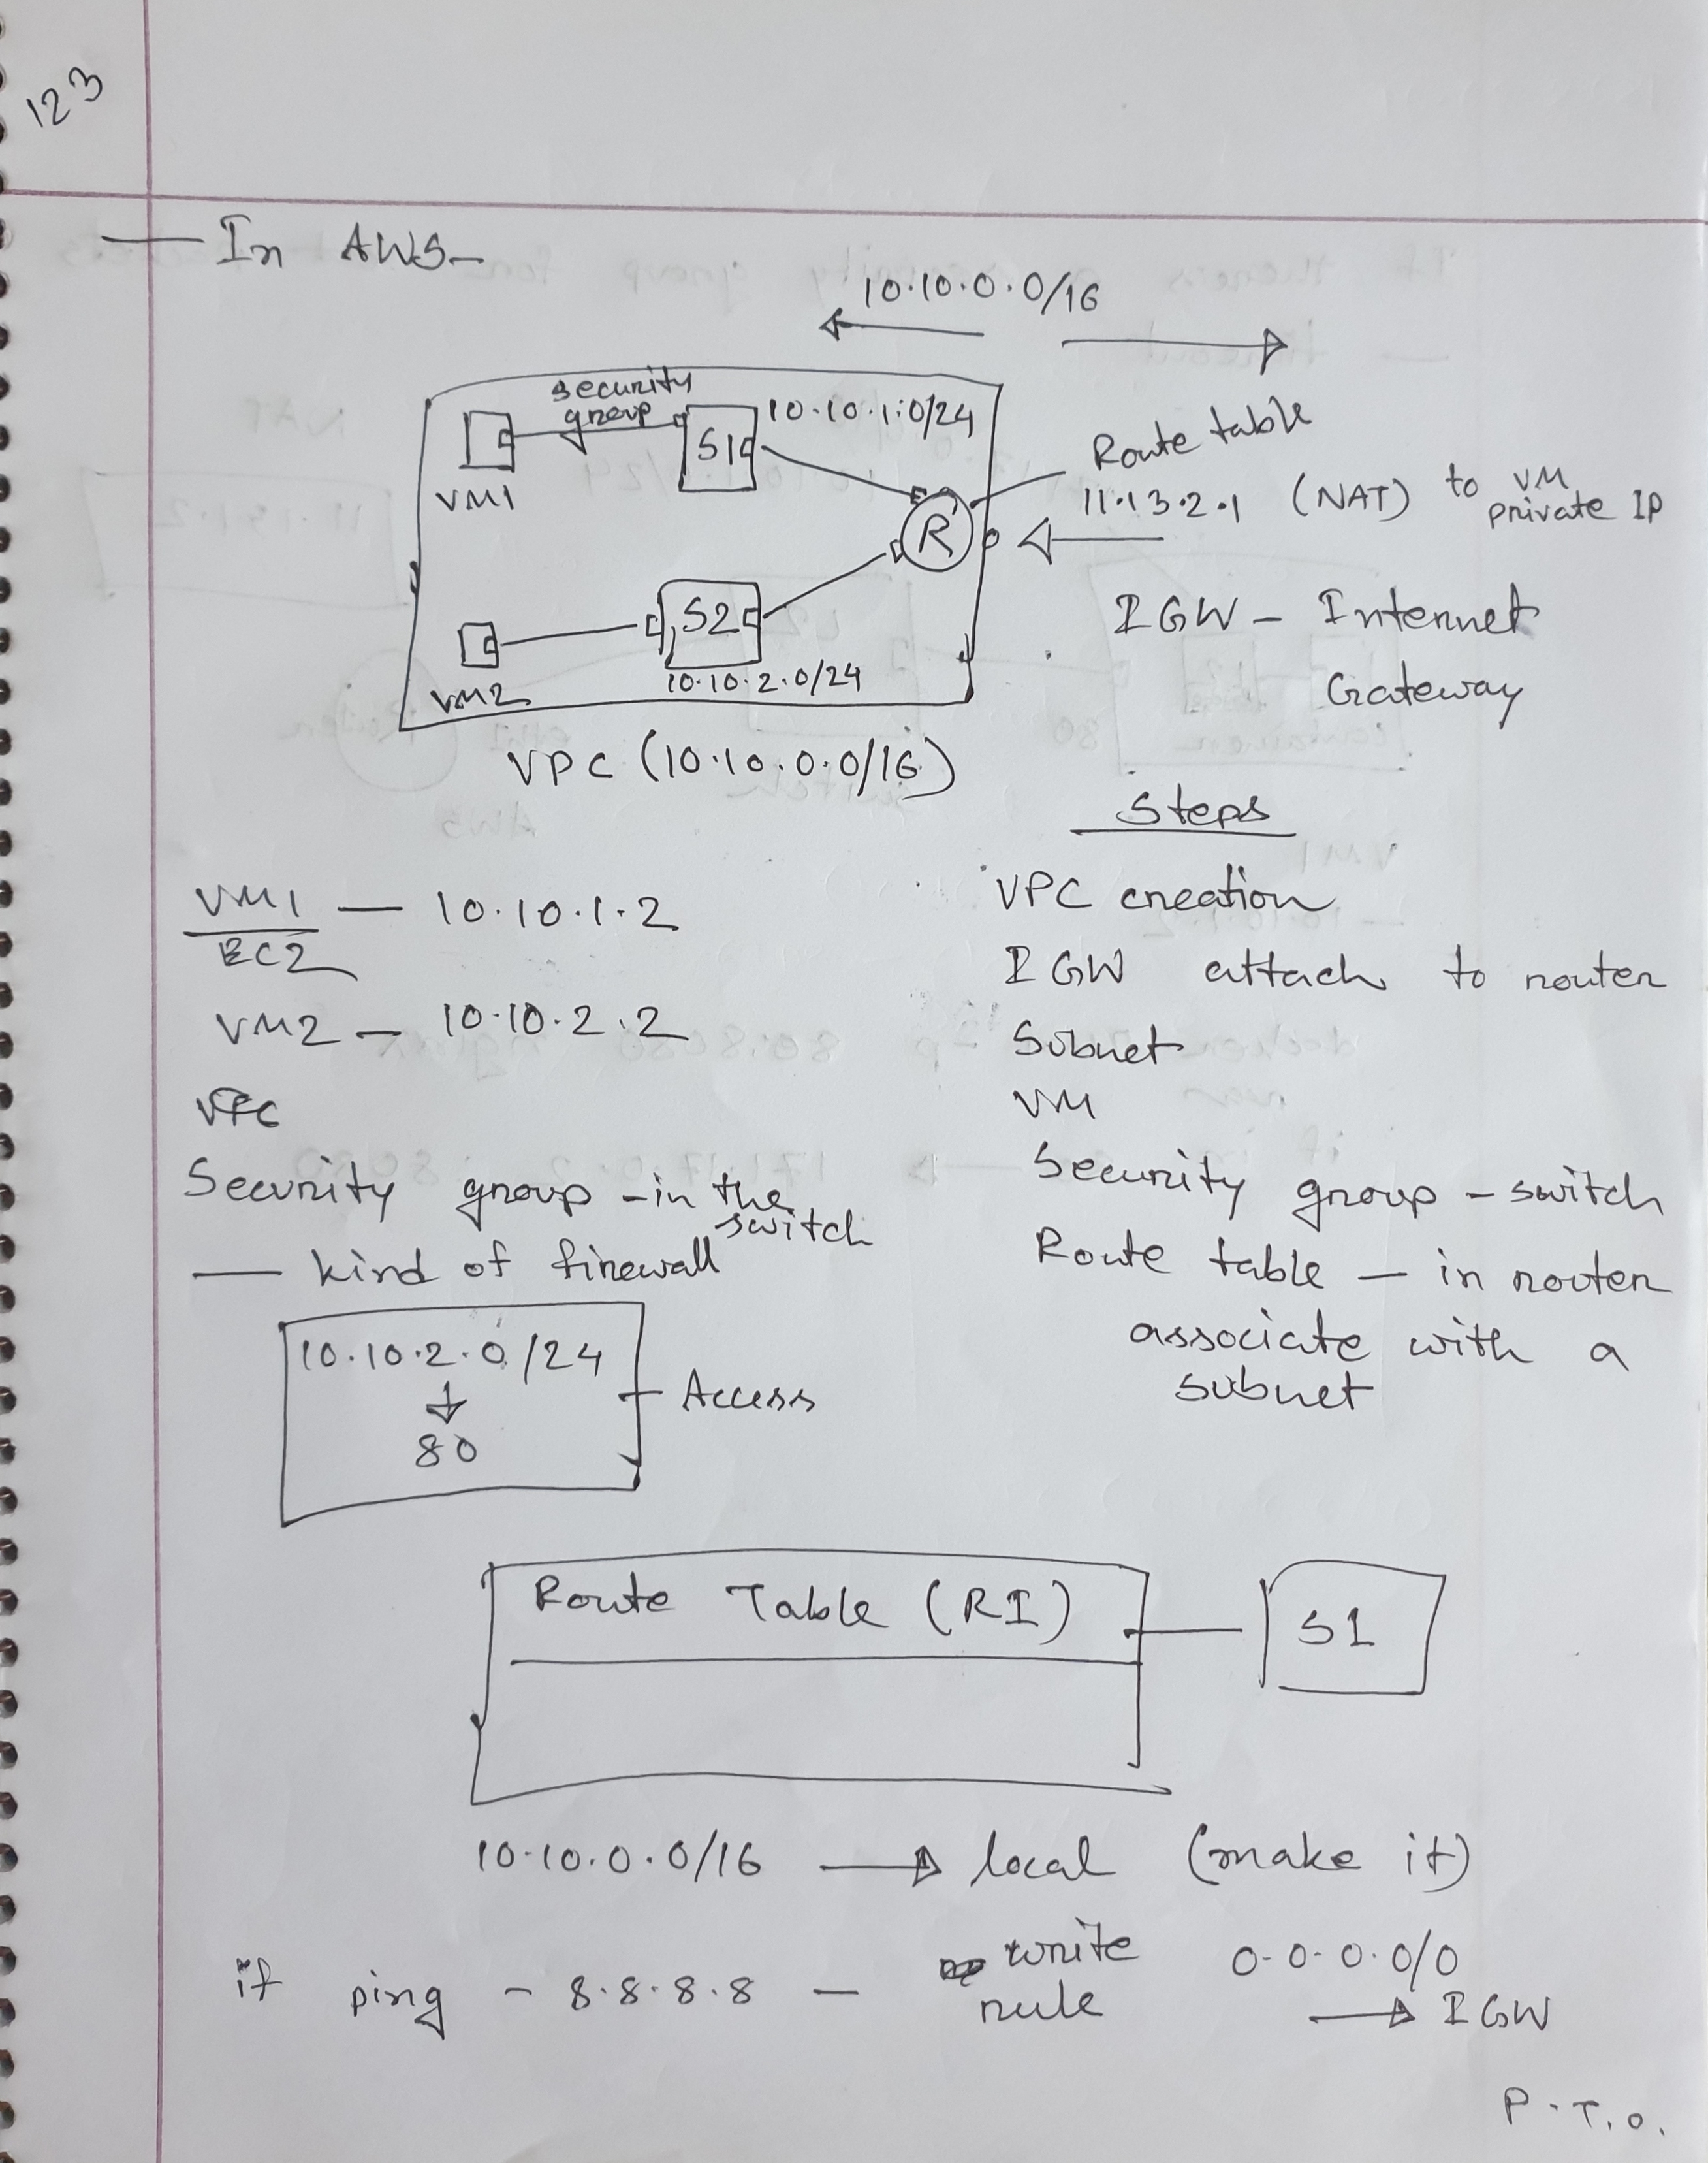 123
— In AWS –
10.10.0.0/16
security
group
10.10.1.0/24
S1
VM1
R
Route table
11.13.2.1 (NAT) to VM
private IP
S2
10.10.2.0/24
VM2
IGW – Internet
Gateway
VPC (10.10.0.0/16)
VM1 — 10.10.1.2
EC2
VM2 — 10.10.2.2
VPC
Security group – in the
switch
— kind of firewall
10.10.2.0/24
↓
80
Access
Steps
VPC creation
IGW attach to router
Subnet
VM
Security group – switch
Route table — in router
associate with a
subnet
Route Table (RI)
S1
10.10.0.0/16 → local (make it)
if ping – 8.8.8.8 — write 0.0.0.0/0
rule → IGW
P.T.O.